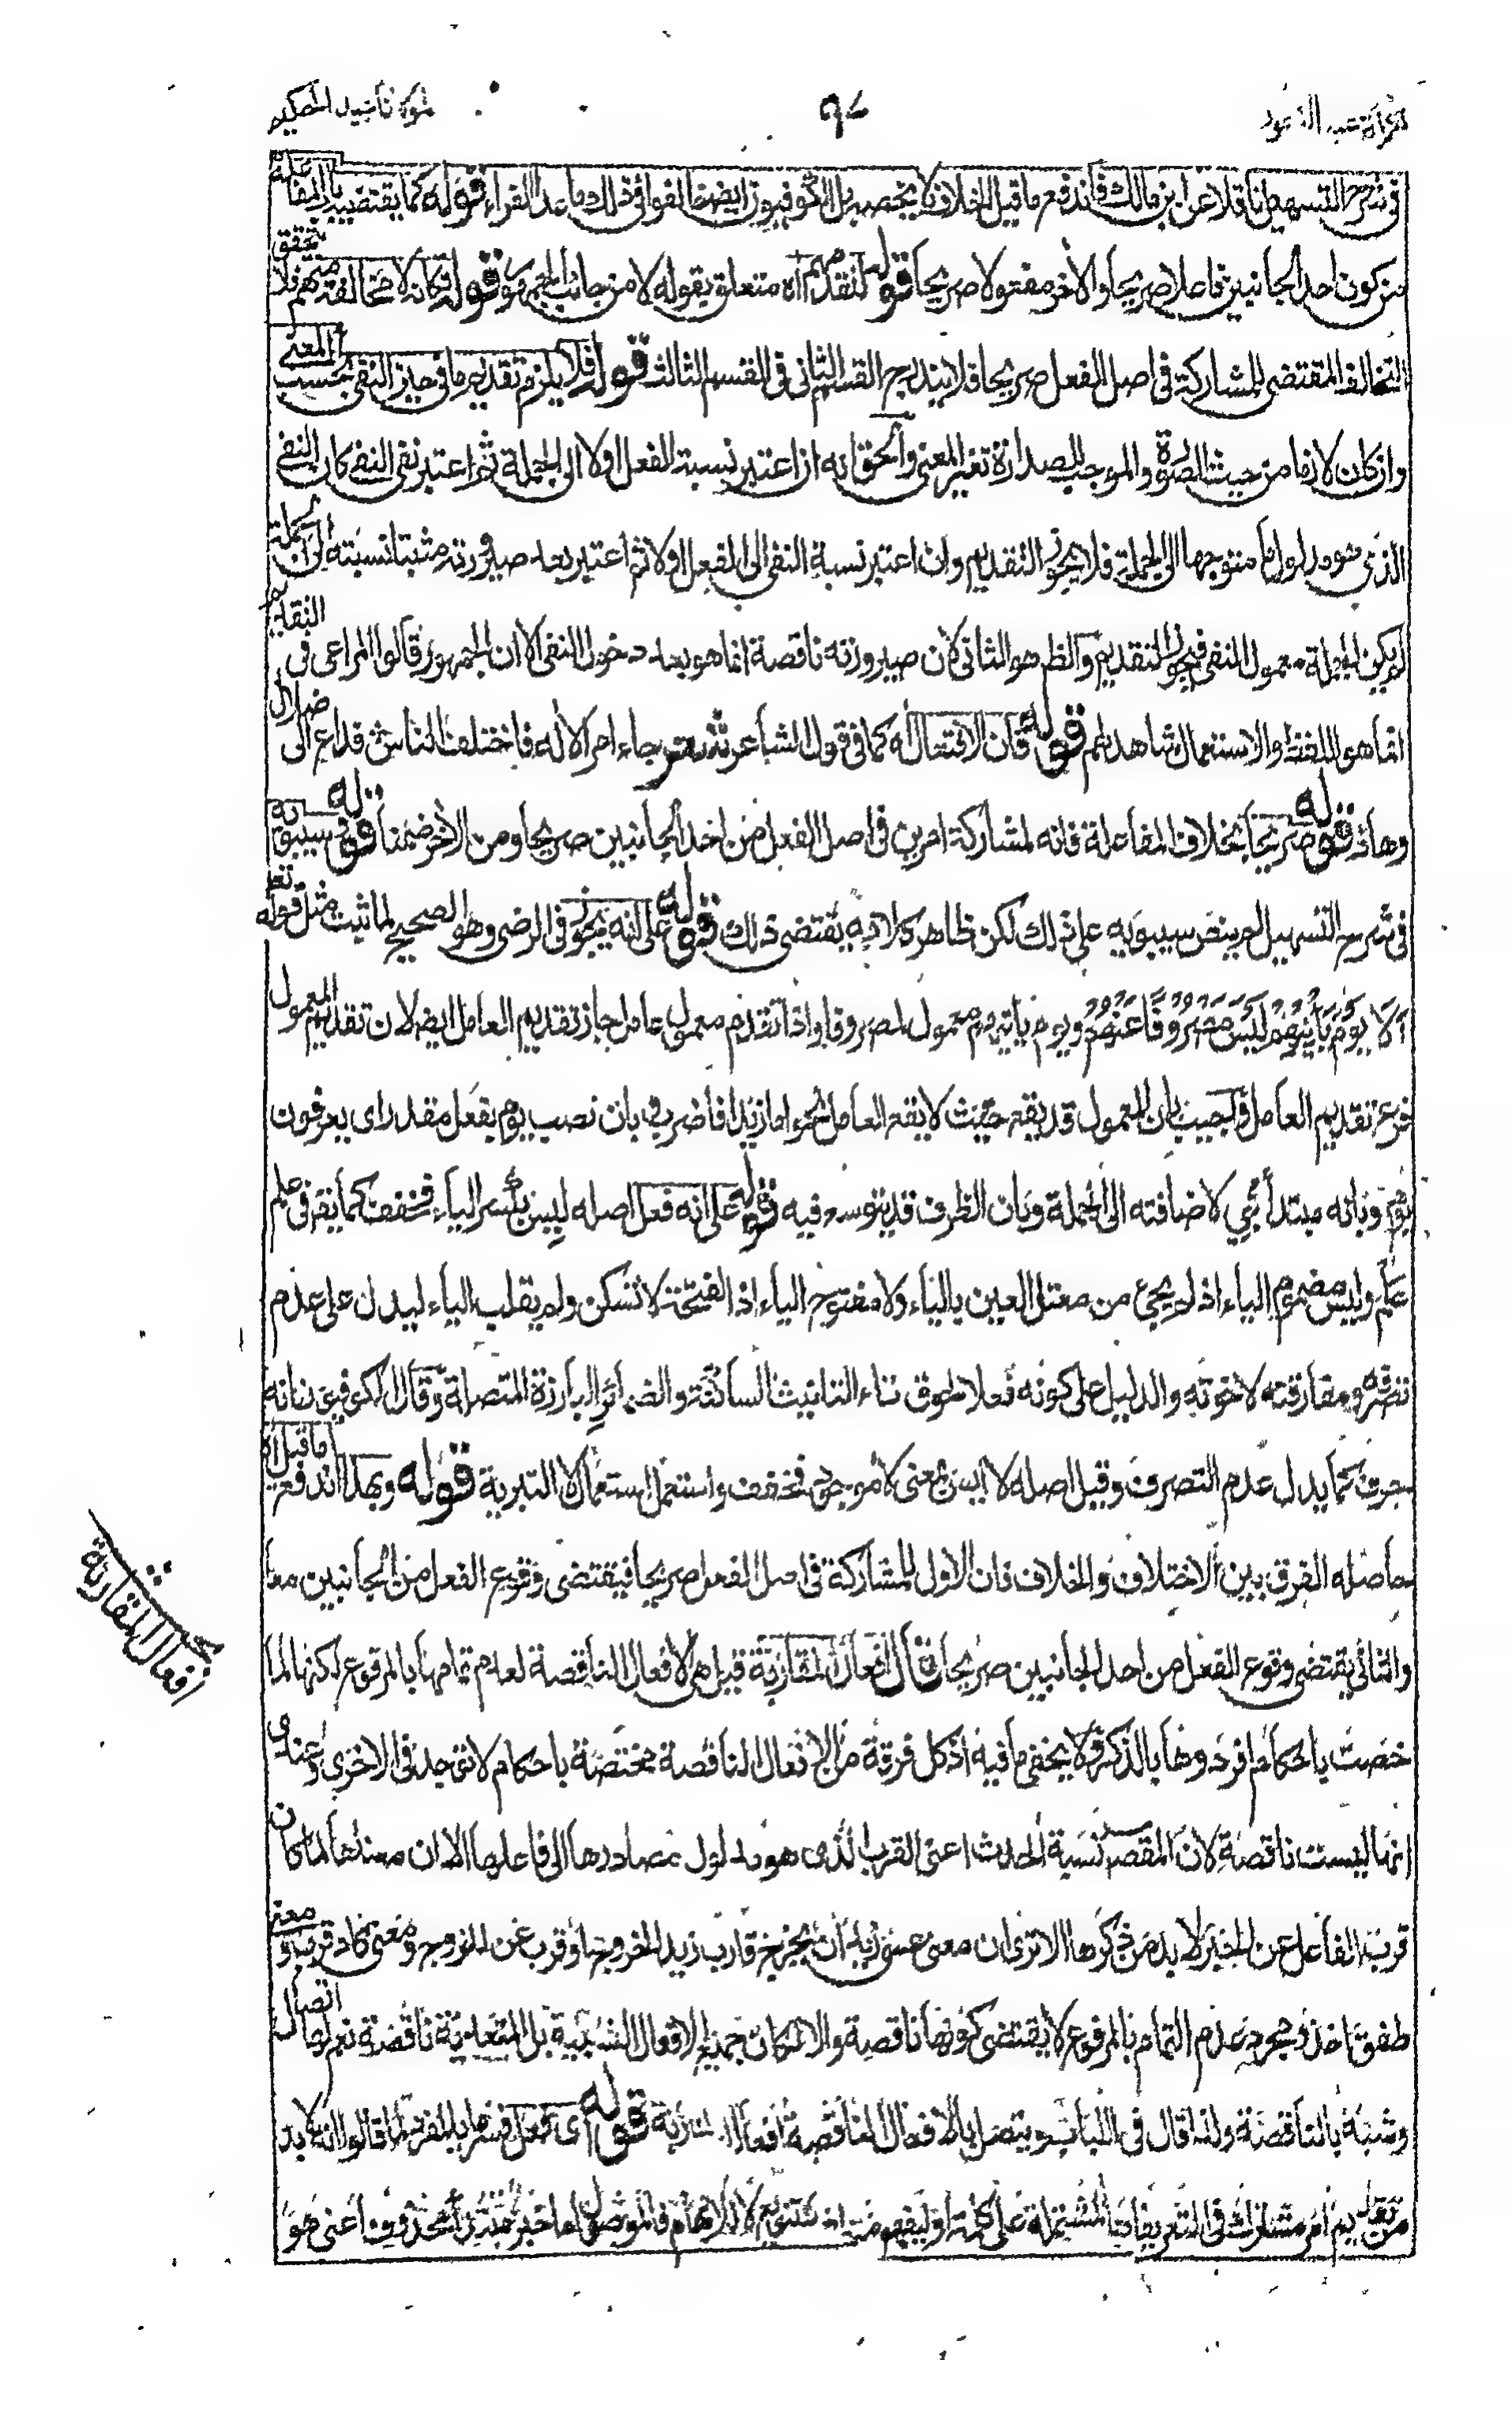 تكملة عبد الغفور
٩٨
لمولانا عبد الحكيم
فى شرح التسهيل ناقلا عن ابن مالك فاندفع ما قيل الخلاف لا يختصه بل الكوفيون ايضا لفوا فى ذلك وما عدا الفراء قوله كما يقتضيه باب المفاعلة
من كون احد الجانبين فاعلا صريحا والاخر مفعولا صريحا قوله لتقدمهم اه متعلق بقوله لا من جانب الجمهور قوله فكانه لا مخالفة منهم فلا يتحقق
التخالف المقتضى للمشاركة فى اصل الفعل صريحا فلا يندرج القسم الثانى فى القسم الثالث قوله فلا يلزم تقديم ما فى حيز النفى بحسب المعنى
وان كان لازما من حيث الصورة والموجب للصدارة تغير المعنى والحق انه ان اعتبر نسبة الفعل اولا الى الجملة ثم اعتبر نفى النفى كان النفى
الذى هو مدلول ما متوجها الى الجملة فلا يجوز التقديم وان اعتبر نسبة النفى الى الفعل اولا ثم اعتبر بعد صيرورته مثبتا نسبته الى الجملة
لم يكن الجملة معمول النفى فيجوز التقديم والظ هو الثانى لان صيرورته ناقصة انما هو بعد دخول النفى الا ان الجمهور قالوا المراعى فى التقديم
انما هو اللفظ والاستعمال شاهد لهم قوله فان الافتعال اه كما فى قول الشاعر شعر جاء امر الاله فاختلف الناس فداع الى ضلال
وهاد قوله صريحا بخلاف المفاعلة فانه لمشاركة امرين فى اصل الفعل من احد الجانبين صريحا ومن الاخر ضمنا قوله سيبويه
فى شرح التسهيل لم ينص سيبويه على ذلك لكن ظاهر كلامه يقتضى ذلك قوله على انه يجوز فى الرضى وهو الصحيح لما ثبت مثل قوله تعالى
اَلَا يَوْمَ يَأْتِيهِمْ لَيْسَ مَصْرُوفًا عَنْهُمْ ويوم ياتيهم معمول لمصروفا واذا تقدم معمول عامل جاز تقديم العامل ايضا لان تقديم المعمول
فرع تقديم العامل واجيب بان المعمول قد يقع حيث لا يقع العامل نحو اما زيدا فاضرب فى بان نصب يوم بفعل مقدر اى يعرفون
يوم وبانه مبتدأ بنى لاضافته الى الجملة وبان الظرف قد يتوسع فيه قوله على انه فعل اصله ليس بكسر الياء فخفف كما يقع فى علم
علم وليس مضموم الياء اذ لم يجئ من معتل العين بالياء ولا مفتوح الياء اذ الفتحة لا تسكن ولم يقلب الياء ليدل على عدم
تصرفه ومفارقته لاخوته والدليل على كونه فعلا لحوق تاء التانيث الساكنة والضمائر البارزة المتصلة وقال الكوفيون بانه
حرف كما يدل عدم التصرف وقيل اصله لا ايس بمعنى لا موجود فخفف واستعمل استعمال لا التبرية قوله وبهذا اندفع ما قيل اه
حاصله الفرق بين الاختلاف والخلاف فان الاول للمشاركة فى اصل الفعل صريحا فيقتضى وقوع الفعل من الجانبين معا
والثانى يقتضى وقوع الفعل من احد الجانبين صريحا قال افعال المقاربة قيل هى الافعال الناقصة لعدم تمامها بالمرفوع لكنها لما
خصت باحكام افردوها بالذكر ولا يخفى ما فيه اذ كل فرقة من الافعال الناقصة مختصة باحكام لا توجد فى الاخرى وعندى
انها ليست ناقصة لان المقصود نسبة الحدث اعنى القرب الذى هو مدلول مصادرها الى فاعلها الا ان معناها لما كان
قرب الفاعل عن الخبر لا بد من ذكرها الا ترى ان معنى عسى زيد ان يخرج قارب زيد الخروج او قرب عن الخروج ومعنى كاد قرب ومعنى
طفق اخذ ومجرد عدم التمام بالمرفوع لا يقتضى كونها ناقصة والا لكان جميع الافعال النسبية بل المتعدية ناقصة نعم لها اتصال
وشبه بالناقصة ولذا قال فى اللباب ويتصل بالافعال الناقصة افعال المقاربة قوله اى فعل فسر ما بالمفرد لما قالوا انه لا بد
من تقديم امر مشترك فى التعريفات المشتملة على كلمة او ليفهم منه اذ للتنويع لا للابهام فالموصول اما خبر مبتدأ محذوف اعنى هو
بحث افعال المقاربة